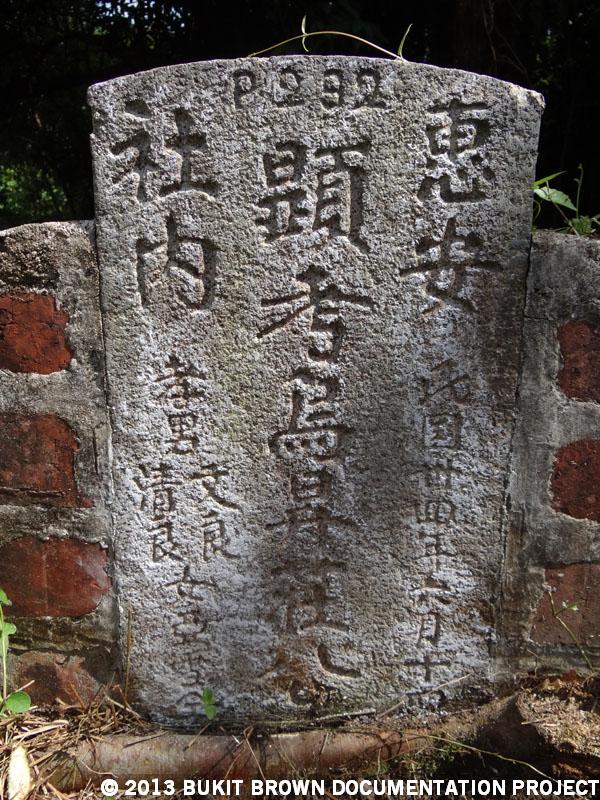 惠安
民国卅四年六月十
顕考烏昇莊公
社内
孝男
文良
清良
女
© 2013 BUKIT BROWN DOCUMENTATION PROJECT